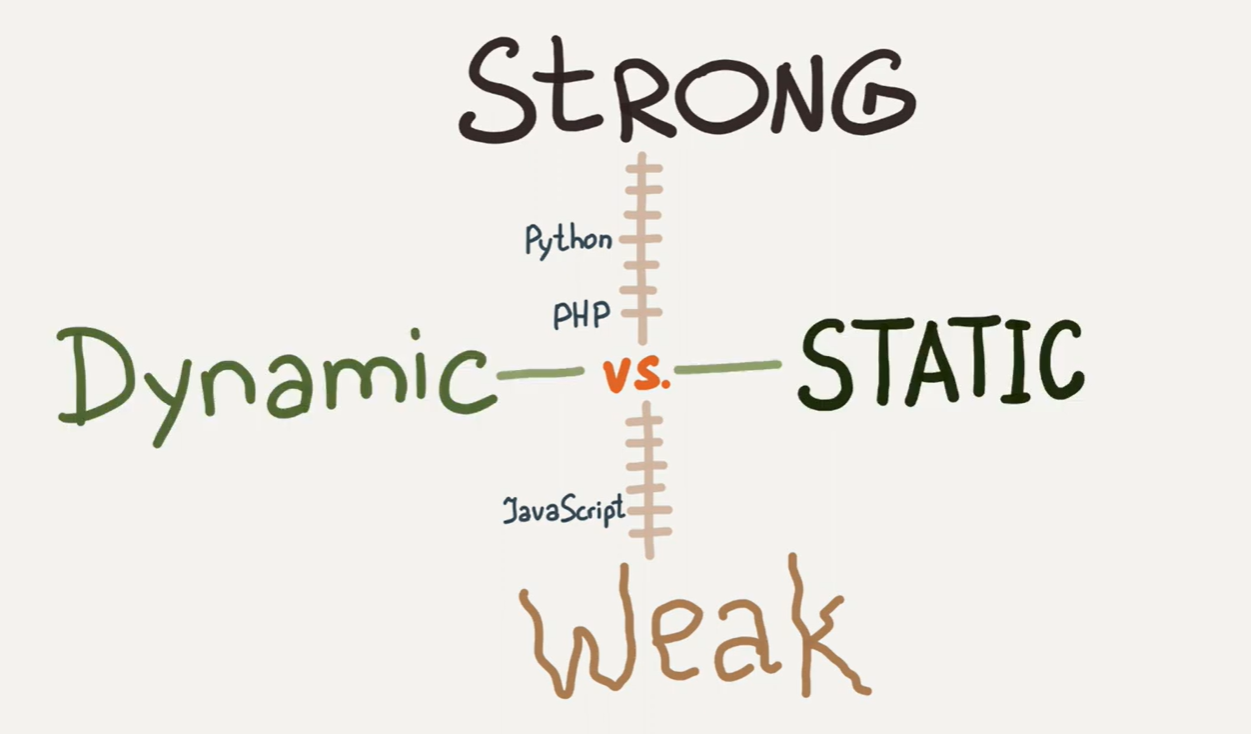 StRONG
Python
PHP
Dynamic vs. STATIC
JavaScript
Weak